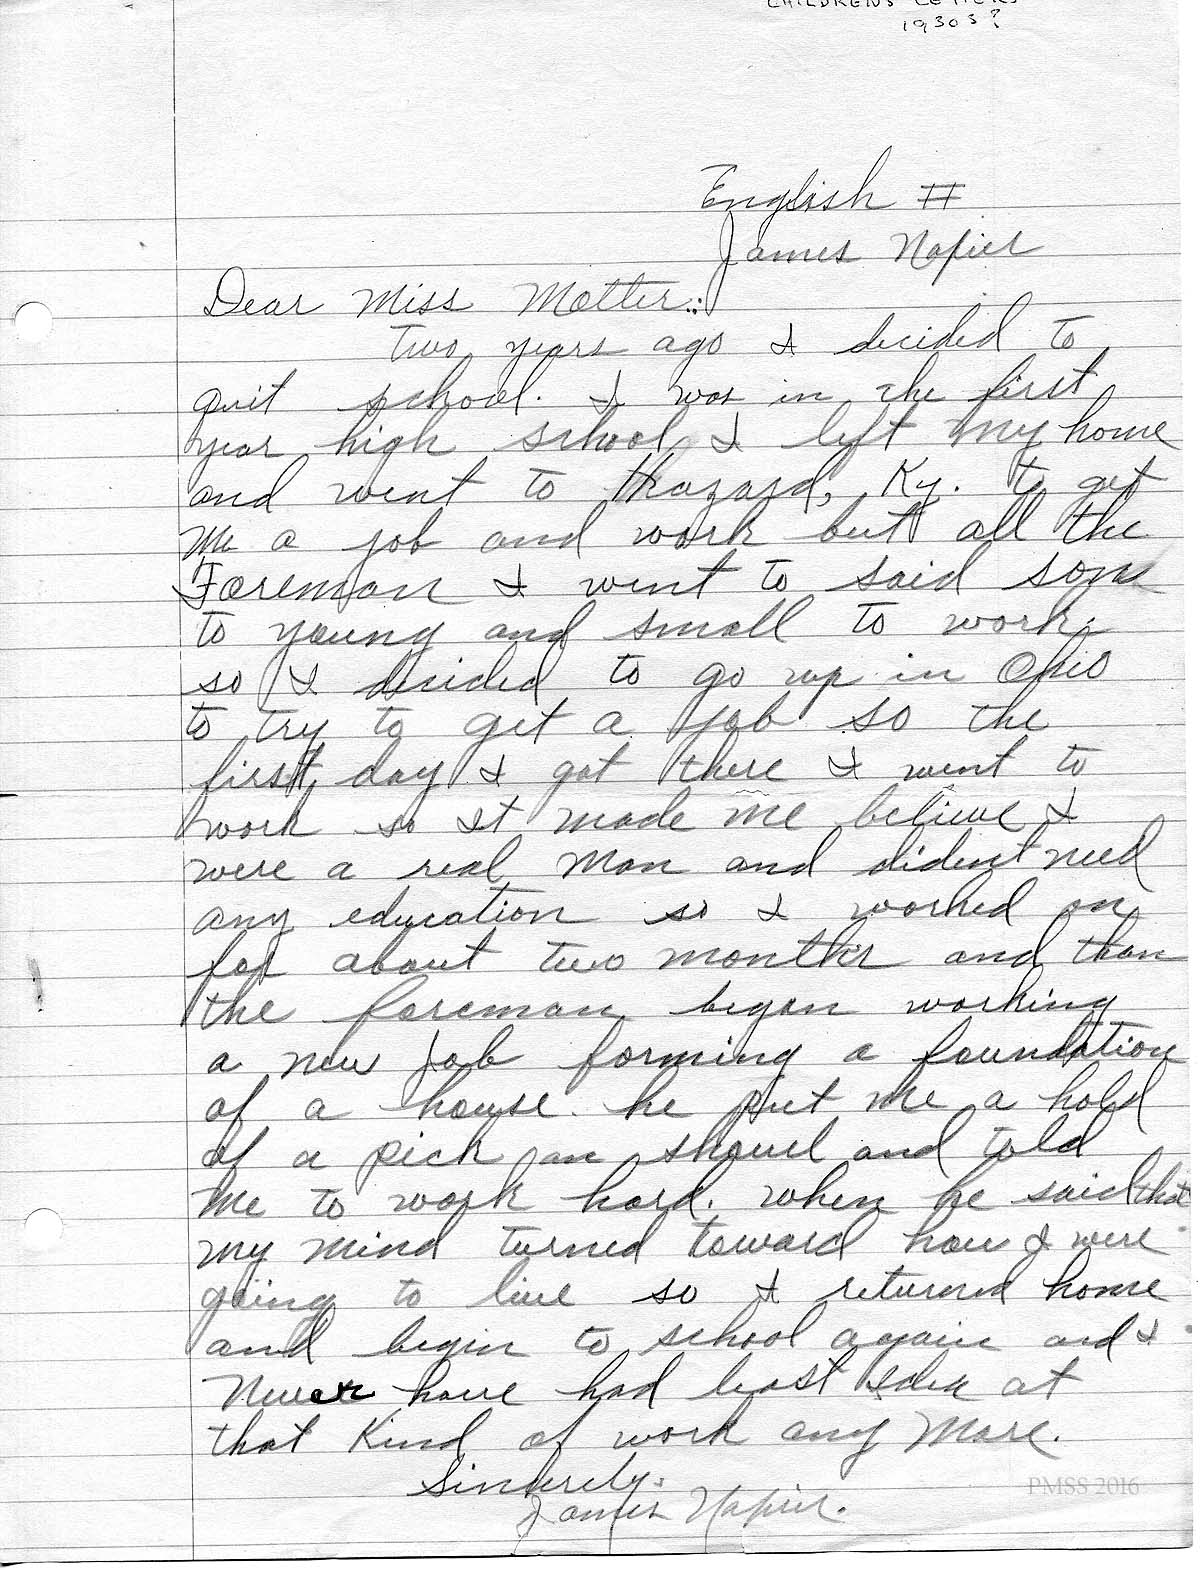 CHILDRENS LETTERS
1930s?
English II
James Napier
Dear Miss Motter:
Two years ago I decided to
quit school. I was in the first
year high school, I left my home
and went to Hazard, Ky. to get
me a job and work but all the
Foreman I went to said son
to young and small to work
so I decided to go up in Ohio
to try to get a job so the
first day I got there I went to
work so it made me believe I
were a real man and dident need
any education so I worked on
for about two months and than
the foreman began working
a new job forming a foundation
of a house. he put me a hold
of a pick an shovel and told
me to work hard. when he said that
my mind turned toward how I were
going to live so I returned home
and begin to school again and I
Never have had least idea at
that kind of work any more.
Sincerely.
James Napier.
PMSS 2016